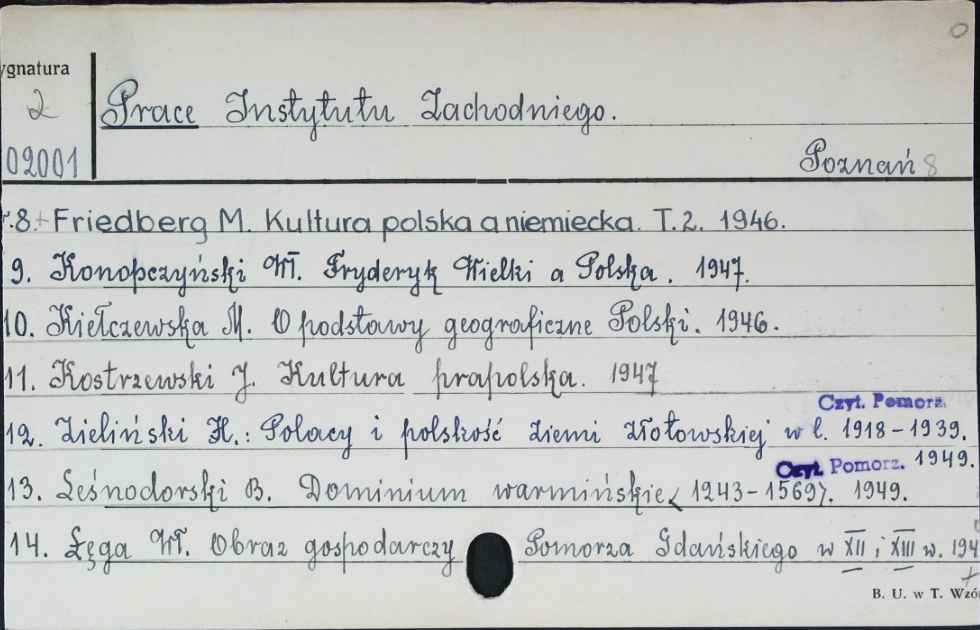 0
ygnatura
2
Prace Instytutu Zachodniego.
02001
Poznań 8
r.8.+ Friedberg M. Kultura polska a niemiecka. T.2. 1946.
9. Konopczyński Wł. Fryderyk Wielki a Polska. 1947.
10. Kiełczewska M. O podstawy geograficzne Polski. 1946.
11. Kostrzewski J. Kultura prapolska. 1947
Czyt. Pomorz.
12. Zieliński H.: Polacy i polskość ziemi złotowskiej w l. 1918-1939.
Czyt. Pomorz. 1949.
13. Leśnodorski B. Dominium warmińskie (1243-1569). 1949.
14. Łęga Wł. Obraz gospodarczy Pomorza Gdańskiego w XII i XIII w. 194
+
B. U. w T. Wzó